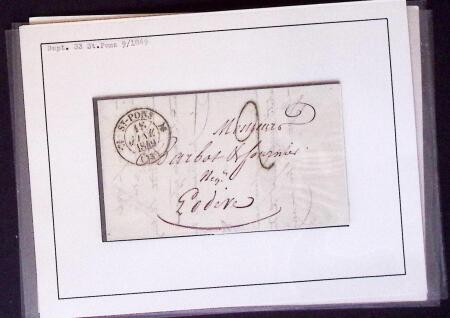 Dept. 33 St.Pons 9/1849
ST-PONS
1849
(33)
2
Messieurs
Barbot & fournier
Negts
Lodève